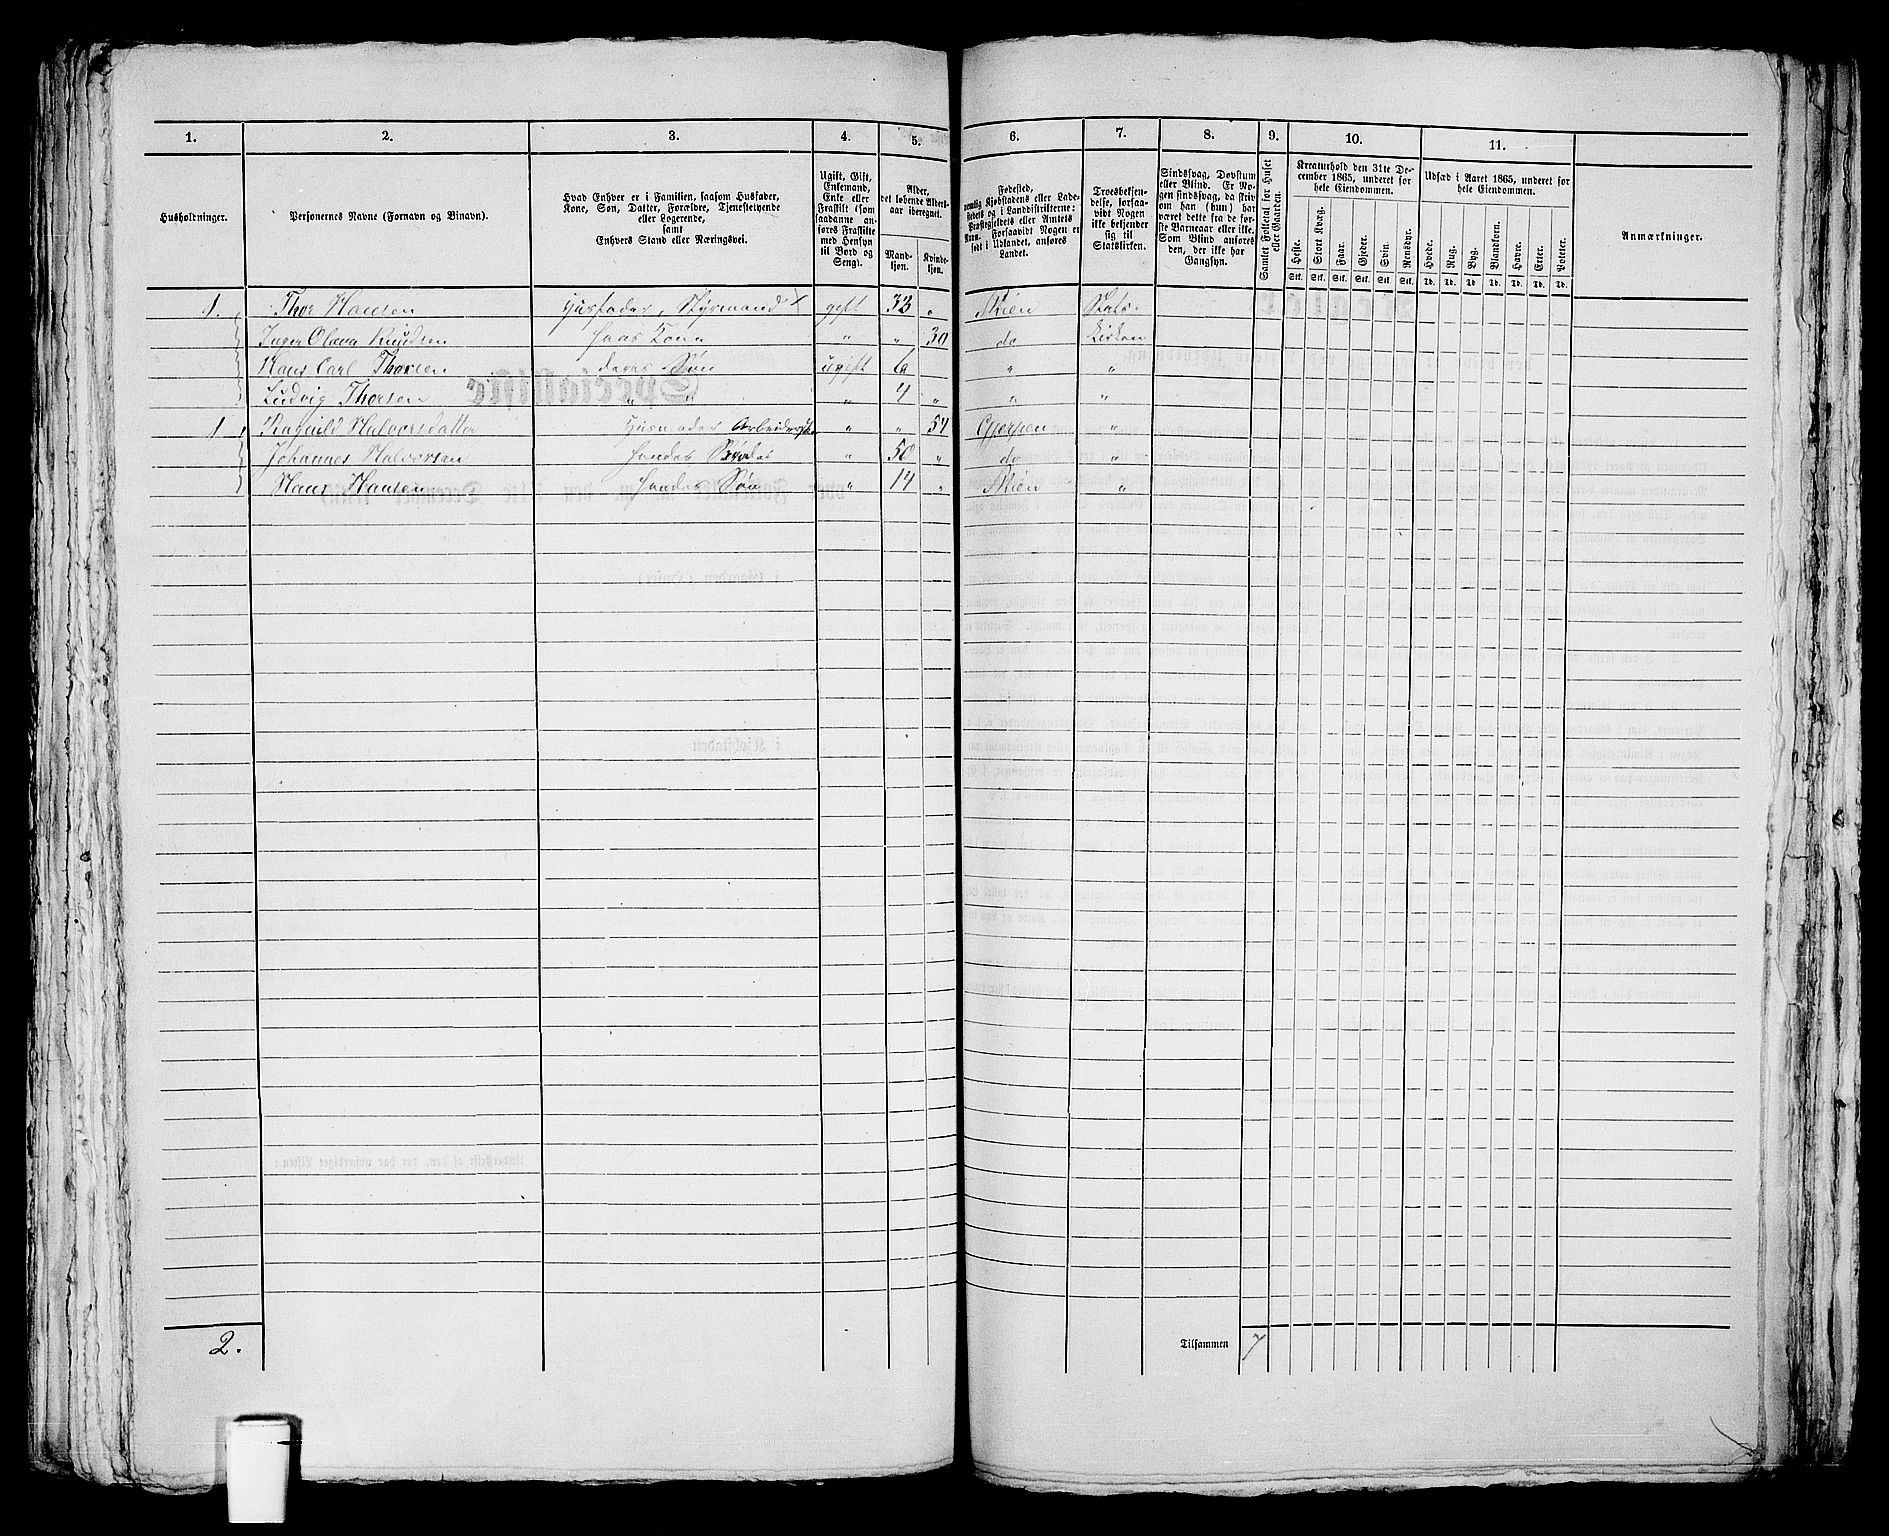 1. 2. 3. 4. 5. 6. 7. 8. 9. 10. 11.
Husholdninger.
Personernes Navne (Fornavn og Binavn).
Hvad Enhver er i Familien, saasom Husfader,
Kone, Søn, Datter, Forældre, Tjenestetyende
eller Logerende,
samt
Enhvers Stand eller Næringsvei.
Ugift, Gift,
Enkemand,
Enke eller
Fraskilt (som
saadanne an-
føres Fraskilte
med Hensyn
til Bord og
Seng).
Alder,
det løbende Alders-
aar iberegnet.
Mand-
kjøn.
Kvinde-
kjøn.
Fødested,
nemlig Kjøbstadens eller Lade-
stedets og i Landdistrikterne:
Præstegjeldets eller Amtets
Navn. Forsaavidt Nogen er
født i Udlandet, anføres
Landet.
Troesbekjen-
delse, forsaa-
vidt Nogen
ikke bekjender
sig til
Statskirken.
Sindssvag, Døvstum
eller Blind. Er No-
gen sindssvag, da skriv
om han (hun) har
været dette fra de før-
ste Barneaar eller ikke.
Som Blind anføres
den, der ikke har
Gangsyn.
Samlet Folketal for Huset
eller Gaarden.
Kreaturhold den 31te De-
cember 1865, underet for
hele Eiendommen.
Heste. Stort Kvæg. Faar. Gjeder. Svin. Rensdyr.
Stk. Stk. Stk. Stk. Stk. Stk.
Udsæd i Aaret 1865, underet for
hele Eiendommen.
Hvede. Rug. Byg. Blandkorn. Havre. Erter. Poteter.
Td. Td. Td. Td. Td. Td. Td.
Anmærkninger.
1. Thor Hansen Husfader, Styrmand gift 33 " Skien Stats-
Inger Olava Knudsen hans Kone " " 30 do Kirken
Hans Carl Thorsen deres Søn ugift 6 " "
Ludvig Thorsen " " " 4 " " "
1 Ragnild Halvorsdatter Husmoder " " 54 Gjerpen "
Johannes Halvorsen hendes " 50 " do "
Hans Hansen hendes Søn " 14 " Skien "
2.
Tilsammen 7